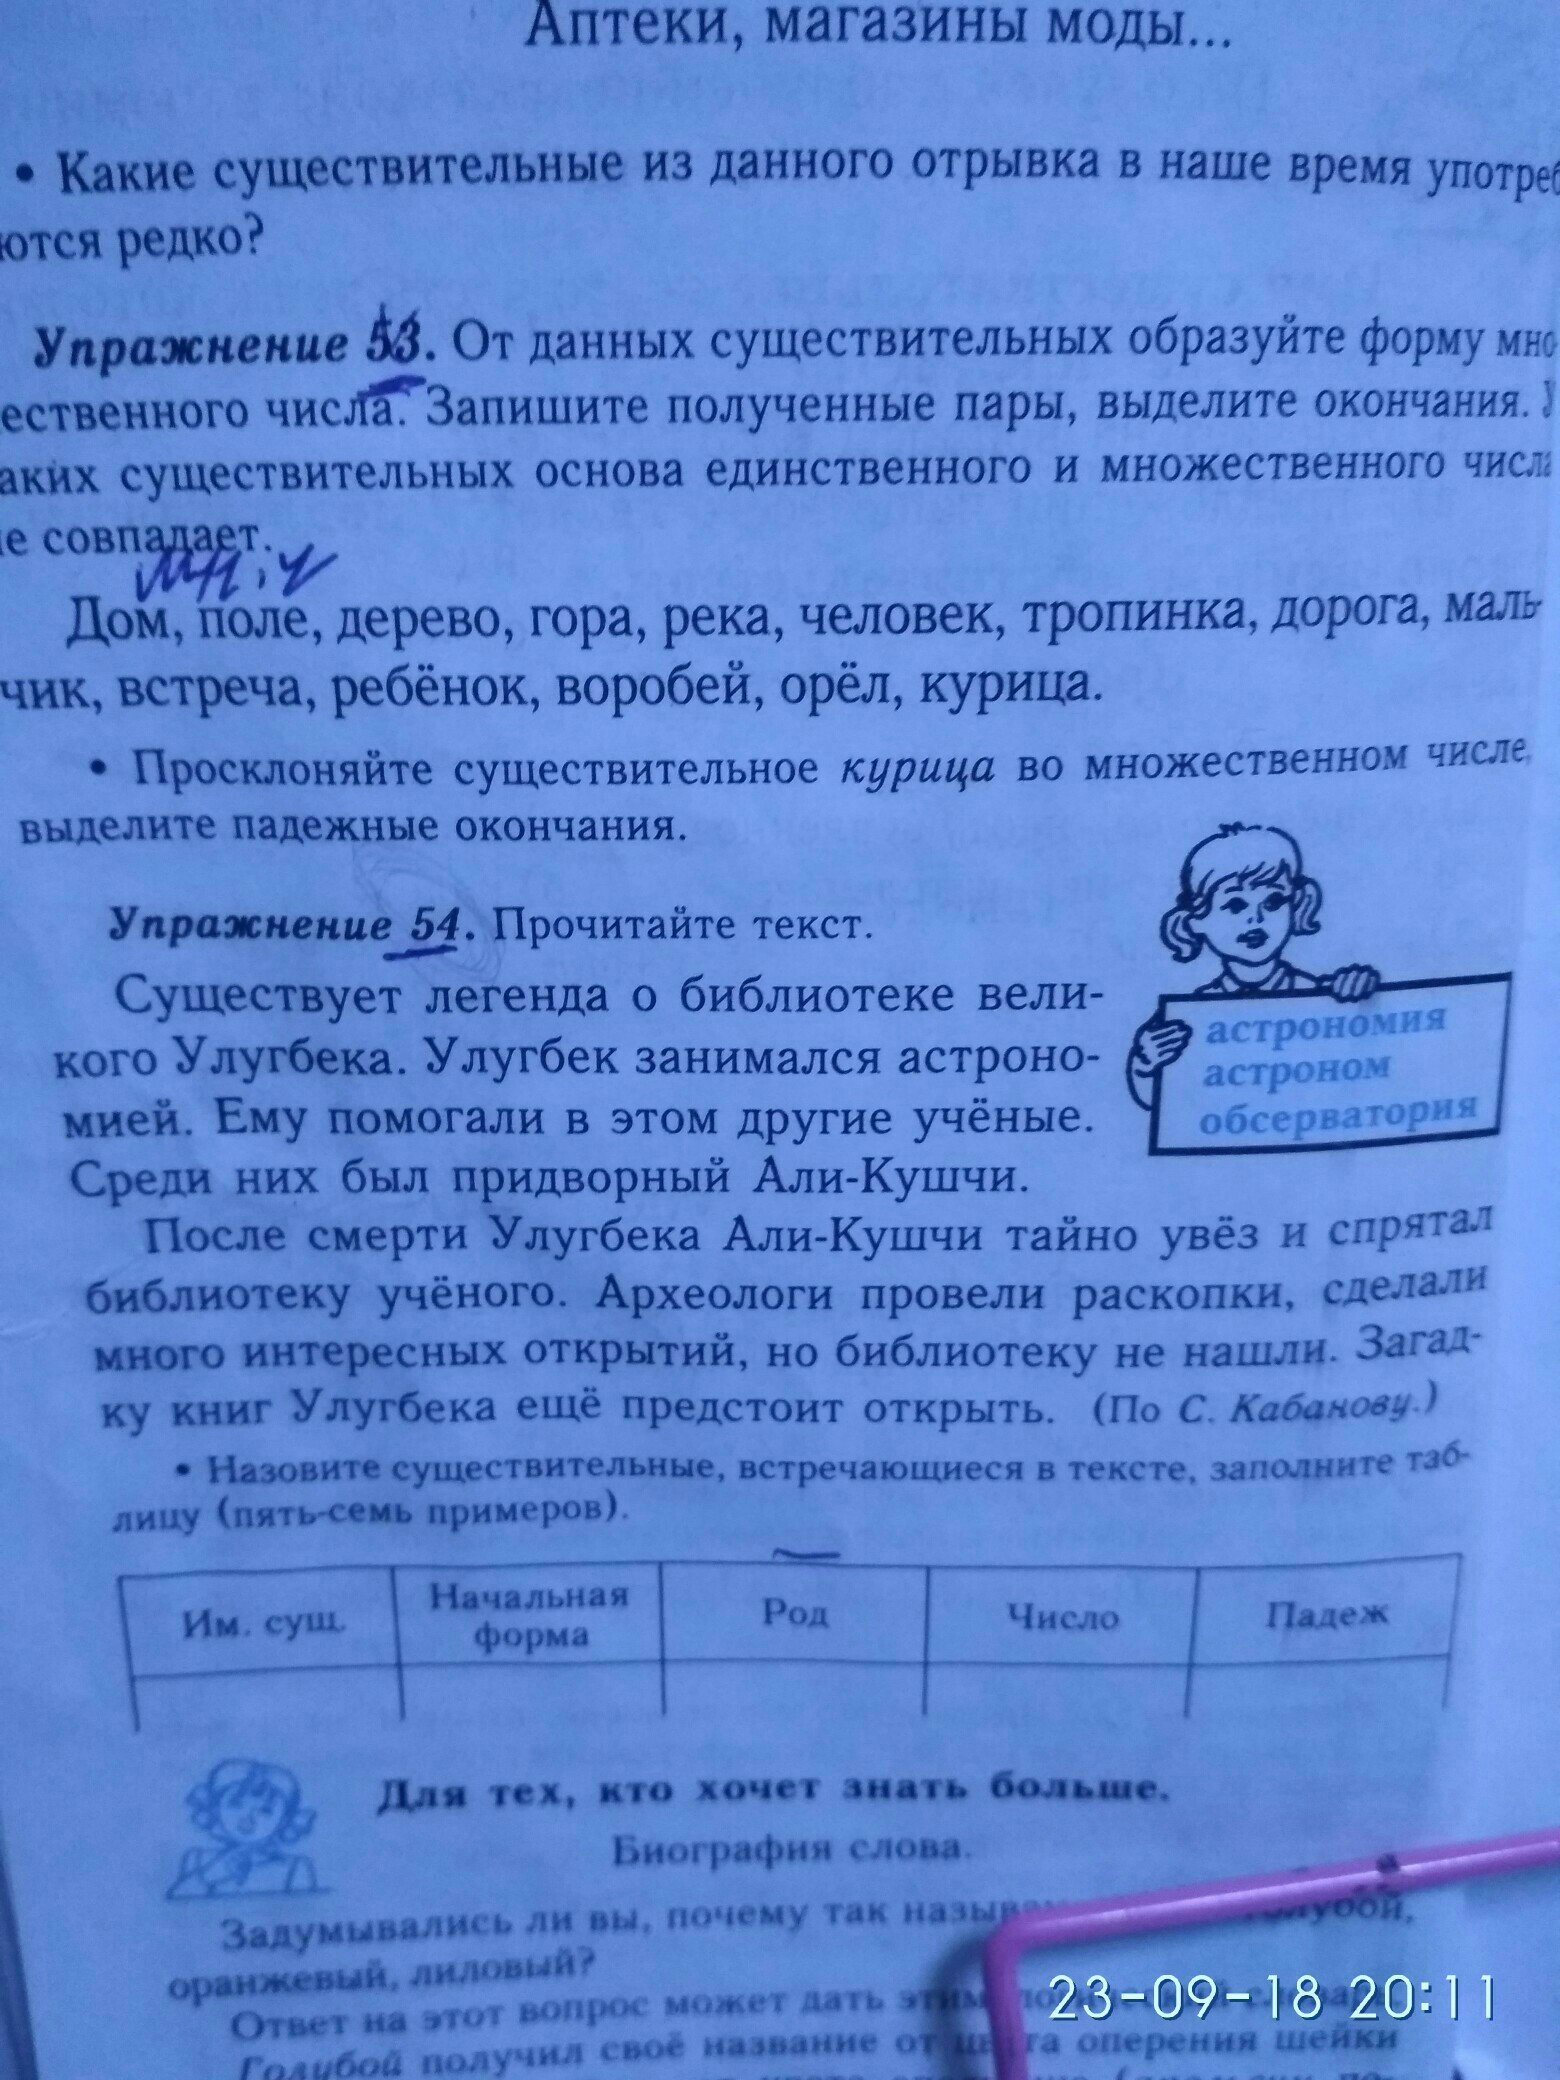 Аптеки, магазины моды...
• Какие существительные из данного отрывка в наше время употреб
ются редко?
Упражнение 53. От данных существительных образуйте форму мно
ественного числа. Запишите полученные пары, выделите окончания. У
аких существительных основа единственного и множественного числа
не совпадает.
мн.ч
Дом, поле, дерево, гора, река, человек, тропинка, дорога, маль-
чик, встреча, ребёнок, воробей, орёл, курица.
• Просклоняйте существительное курица во множественном числе,
выделите падежные окончания.
Упражнение 54. Прочитайте текст.
Существует легенда о библиотеке вели-
кого Улугбека. Улугбек занимался астроно-
мией. Ему помогали в этом другие учёные.
Среди них был придворный Али-Кушчи.
астрономия
астроном
обсерватория
После смерти Улугбека Али-Кушчи тайно увёз и спрятал
библиотеку учёного. Археологи провели раскопки, сделали
много интересных открытий, но библиотеку не нашли. Загад-
ку книг Улугбека ещё предстоит открыть. (По С. Кабанову.)
• Назовите существительные, встречающиеся в тексте, заполните таб-
лицу (пять-семь примеров).
Им. сущ. Начальная форма Род Число Падеж
Для тех, кто хочет знать больше.
Биография слова.
Задумывались ли вы, почему так называ голубой,
оранжевый, лиловый?
Ответ на этот вопрос может дать
Голубой получил своё название от цвета оперения шейки
23-09-18 20:11